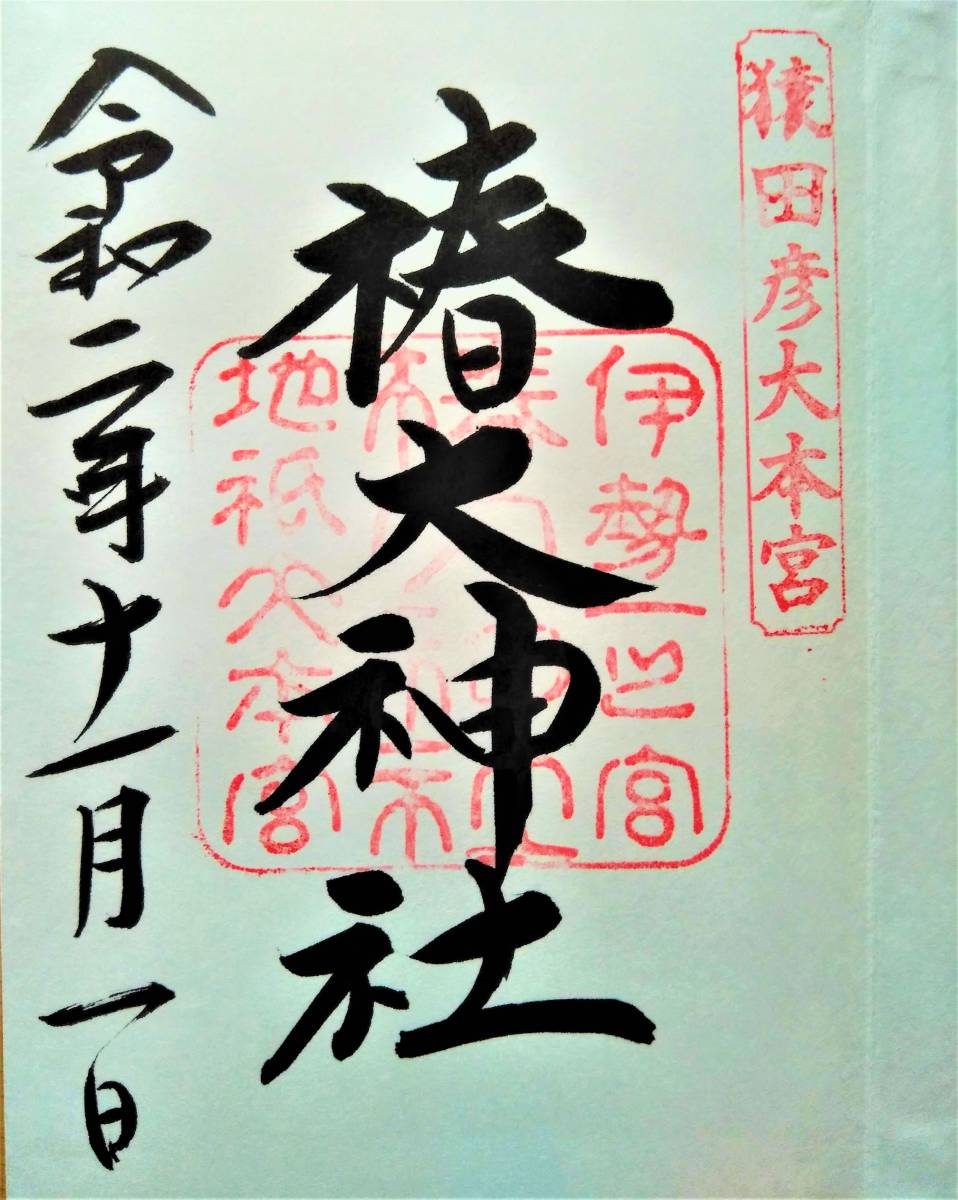 猿田彦大本宮
伊勢一之宮
椿大神社
地祇大本宮
椿大神社
令和二年十一月一日